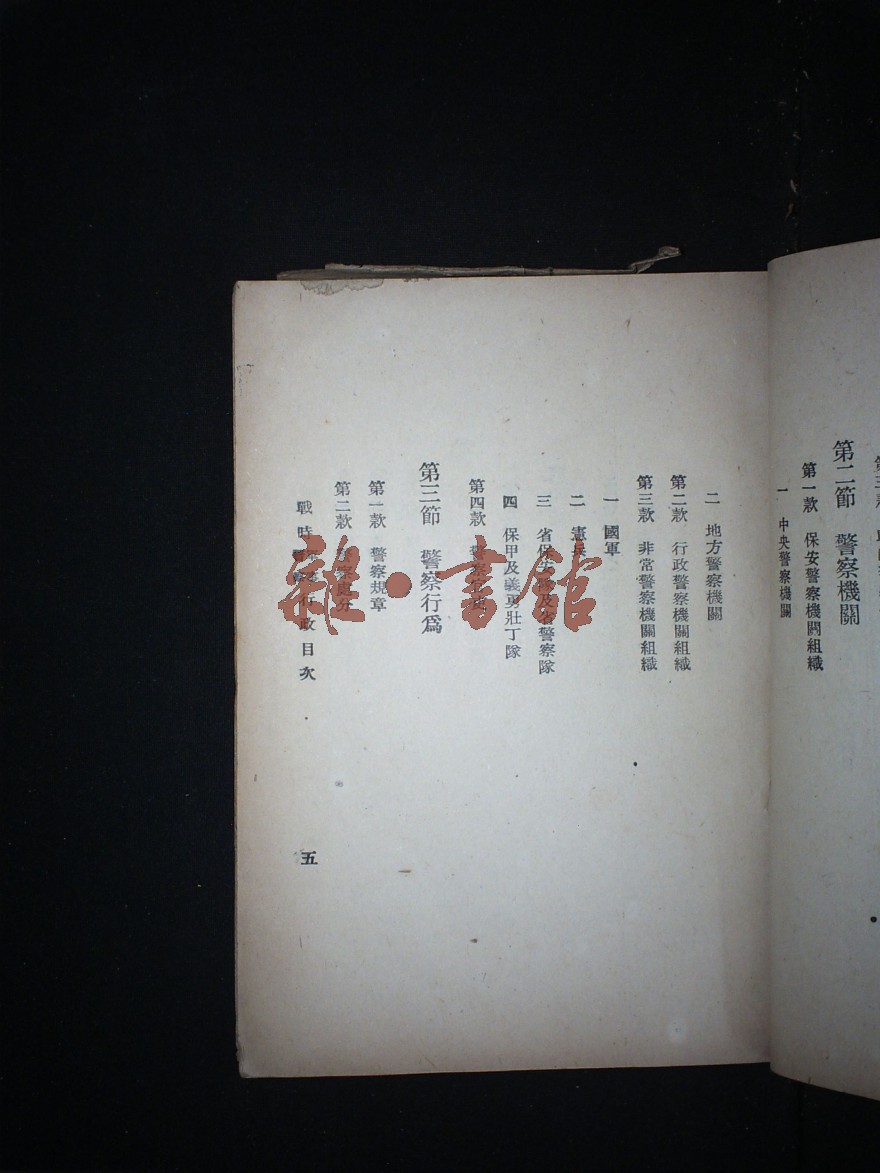 第二節　警察機關
第一款　保安警察機關組織
一　中央警察機關
二　地方警察機關
第二款　行政警察機關組織
第三款　非常警察機關組織
一　國軍
二　憲兵
三　省保安隊及省警察隊
四　保甲及義勇壯丁隊
第四款　警察官吏
第三節　警察行爲
第一款　警察規章
第二款　警察處分
戰時行政目次
五
雜·書館